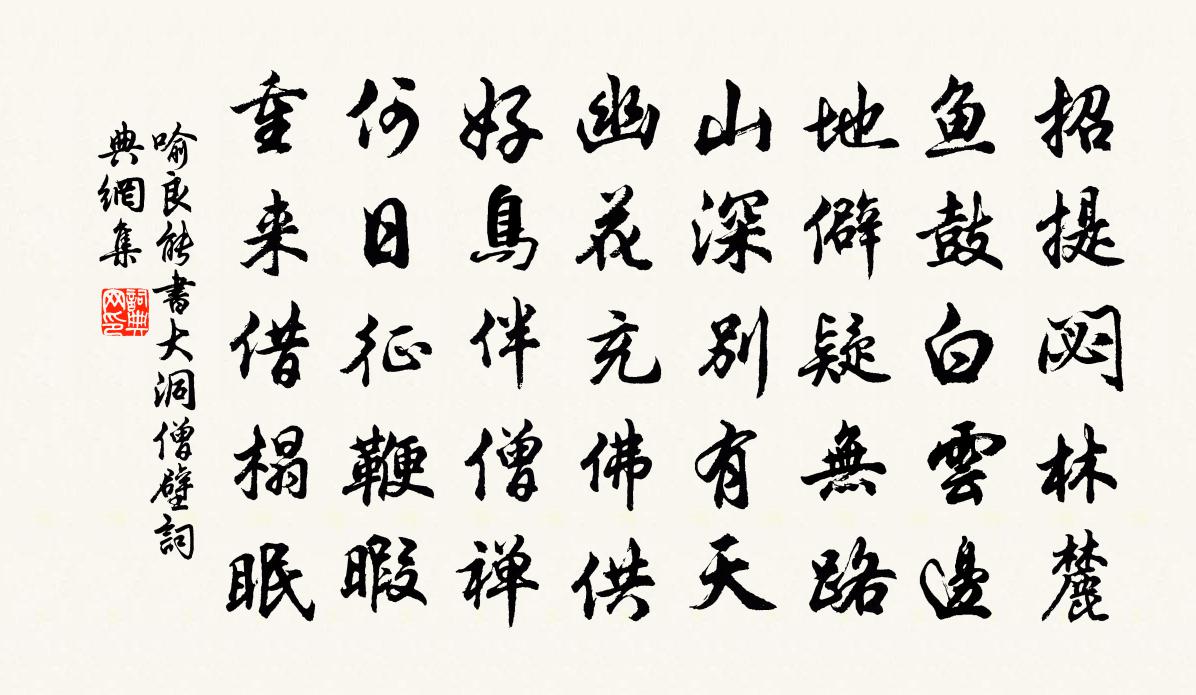 招提閟林麓
魚鼓白雲邊
地僻疑無路
山深別有天
幽花充佛供
好鳥伴僧禅
何日征鞭暇
重来借榻眠
喻良能書大洞僧壁詞
典網集
詞典
网印